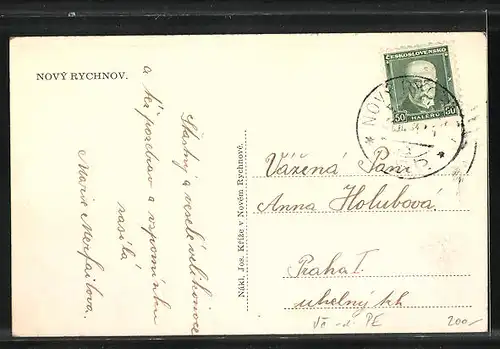 NOVÝ RYCHNOV.
Šťastný a veselé velikonoce
a též pozdrav a vzpomínku
zasílá
Marie
Nákl. Jos. Kříže v Novém Rychnově.
ČESKOSLOVENSKO
50 HALÉŘŮ 50
NOVÝ
Vážená Paní
Anna Holubová.
Praha I.
uhelný trh
PE
200,-